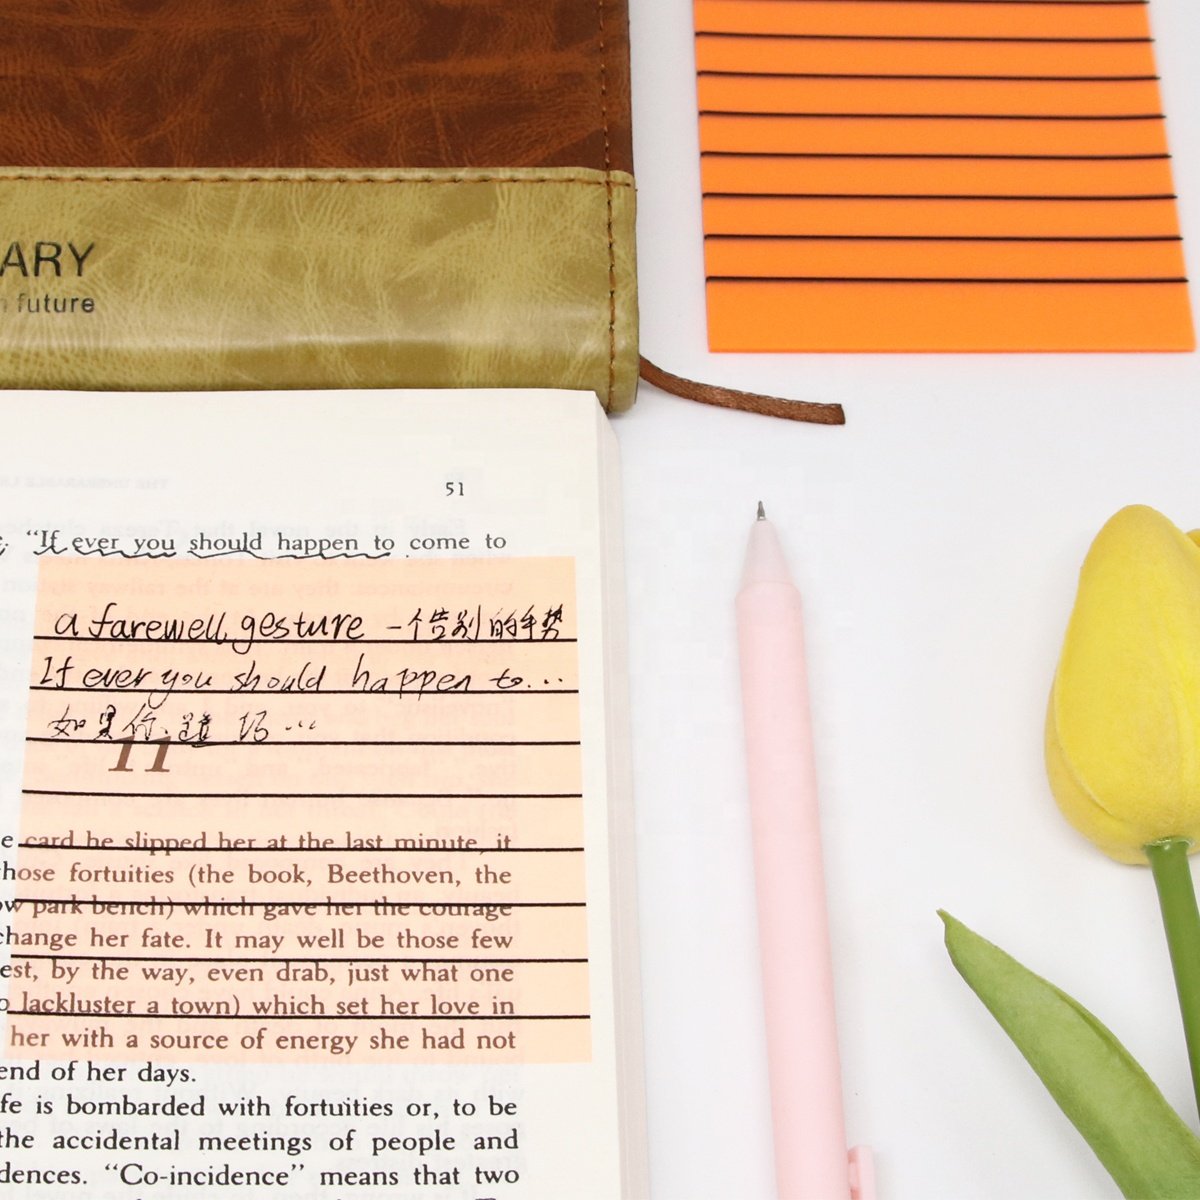 ARY
future
51
"If ever you should happen to come to
a farewell gesture 一个告别的手势
If ever you should happen to...
如果你、道 巧...
11
e card he slipped her at the last minute, it
hose fortuities (the book, Beethoven, the
ow park bench) which gave her the courage
change her fate. It may well be those few
est, by the way, even drab, just what one
o lackluster a town) which set her love in
her with a source of energy she had not
end of her days.
fe is bombarded with fortuities or, to be
the accidental meetings of people and
dences. "Co-incidence" means that two